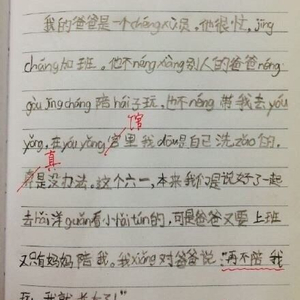 我的爸爸是一个chéng员，他很忙，jīng
cháng加班。他不néng xiàng别人的爸爸néng
gòu jīng cháng陪hái子玩，也不néng带我去yóu
馆
yǒng，在yóu yǒng宫里我dōu是自己洗zǎo的，
真
是没办法。这个六一，本来我们是说好了一起
去hǎi洋guǎn看小hǎi tún的，可是爸爸又要上班
又只有妈妈陪我。我xiǎng对爸爸说：“再不陪我
玩，我就长大了！”